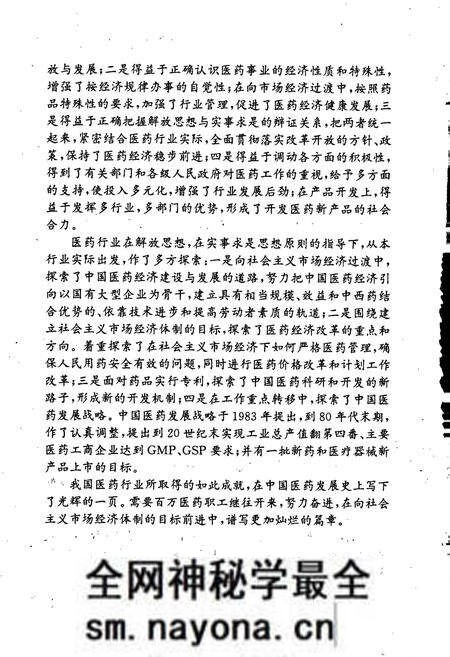 放与发展;二是得益于正确认识医药事业的经济性质和特殊性,
增强了按经济规律办事的自觉性;在向市场经济过渡中,按照药
品特殊性的要求,加强了行业管理,促进了医药经济健康发展;三
是得益于正确把握解放思想与实事求是的辩证关系,把两者统一
起来,紧密结合医药行业实际,全面贯彻落实改革开放的方针、政
策,保持了医药经济稳步前进;四是得益于调动各方面的积极性,
得到了有关部门和各级人民政府对医药工作的重视,给予多方面
的支持,使投入多元化,增强了行业发展后劲;在产品开发上,得
益于发挥多行业,多部门的优势,形成了开发医药新产品的社会
合力。
医药行业在解放思想,在实事求是思想原则的指导下,从本
行业实际出发,作了多方探索:一是向社会主义市场经济过渡中,
探索了中国医药经济建设与发展的道路,努力把中国医药经济引
向以国有大型企业为骨干,建立具有相当规模、效益和中西药结
合优势的、依靠技术进步和提高劳动者素质的轨道;二是围绕建
立社会主义市场经济体制的目标,探索了医药经济改革的重点和
方向。着重探索了在社会主义市场经济下如何严格医药管理,确
保人民用药安全有效的问题,同时进行医药价格改革和计划工作
改革;三是面对药品实行专利,探索了中国医药科研和开发的新
路子,形成新的开发机制;四是在工作重点转移中,探索了中国医
药发展战略。中国医药发展战略于1983年提出,到80年代末期,
作了认真调整,提出到20世纪末实现工业总产值翻第四番、主要
医药工商企业达到GMP、GSP要求;并有一批新药和医疗器械新
产品上市的目标。
我国医药行业所取得的如此成就,在中国医药发展史上写下
了光辉的一页。需要百万医药职工继往开来,努力奋进,在向社会
主义市场经济体制的目标前进中,谱写更加灿烂的篇章。
全网神秘学最全
sm.nayona.cn